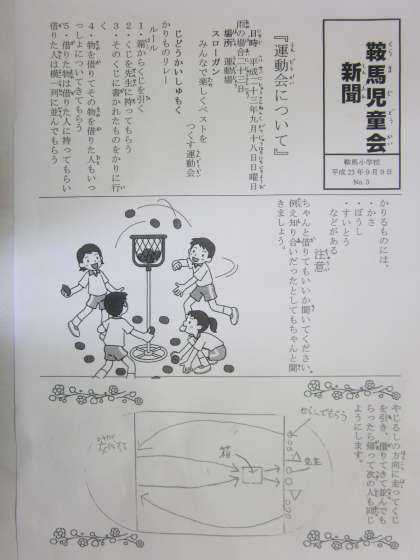 鞍馬児童会
新聞
鞍馬小学校
平成23年9月9日
No.3
『運動会について』
日時 平成二十三年九月十八日日曜日
雨の場合二十三日
場所 運動場
スローガン
みんなで楽しくベストを
つくす運動会
じどうかいしゅもく
かりものリレー
ルール
1・箱からくじを引く
2・くじを先生に持ってもらう
3・そのくじに書かれたものをかりに行
く
4・物を借りてその物を借りた人もいっ
しょについてきてもらう
5・借りた物は借りた人に持ってもらい
借りた人は横一列に並んでもらう
かりるものには、
・かさ
・ぼうし
・すいとう
などがある
注意
ちゃんと借りてもいいか聞いてください。
例え知り合いだったとしてもちゃんと聞
きましょう。
やじるしの方向に走ってくじ
を引き、借りてきて並んでも
らったら帰って次の人も同じ
ようにします。
箱
先生